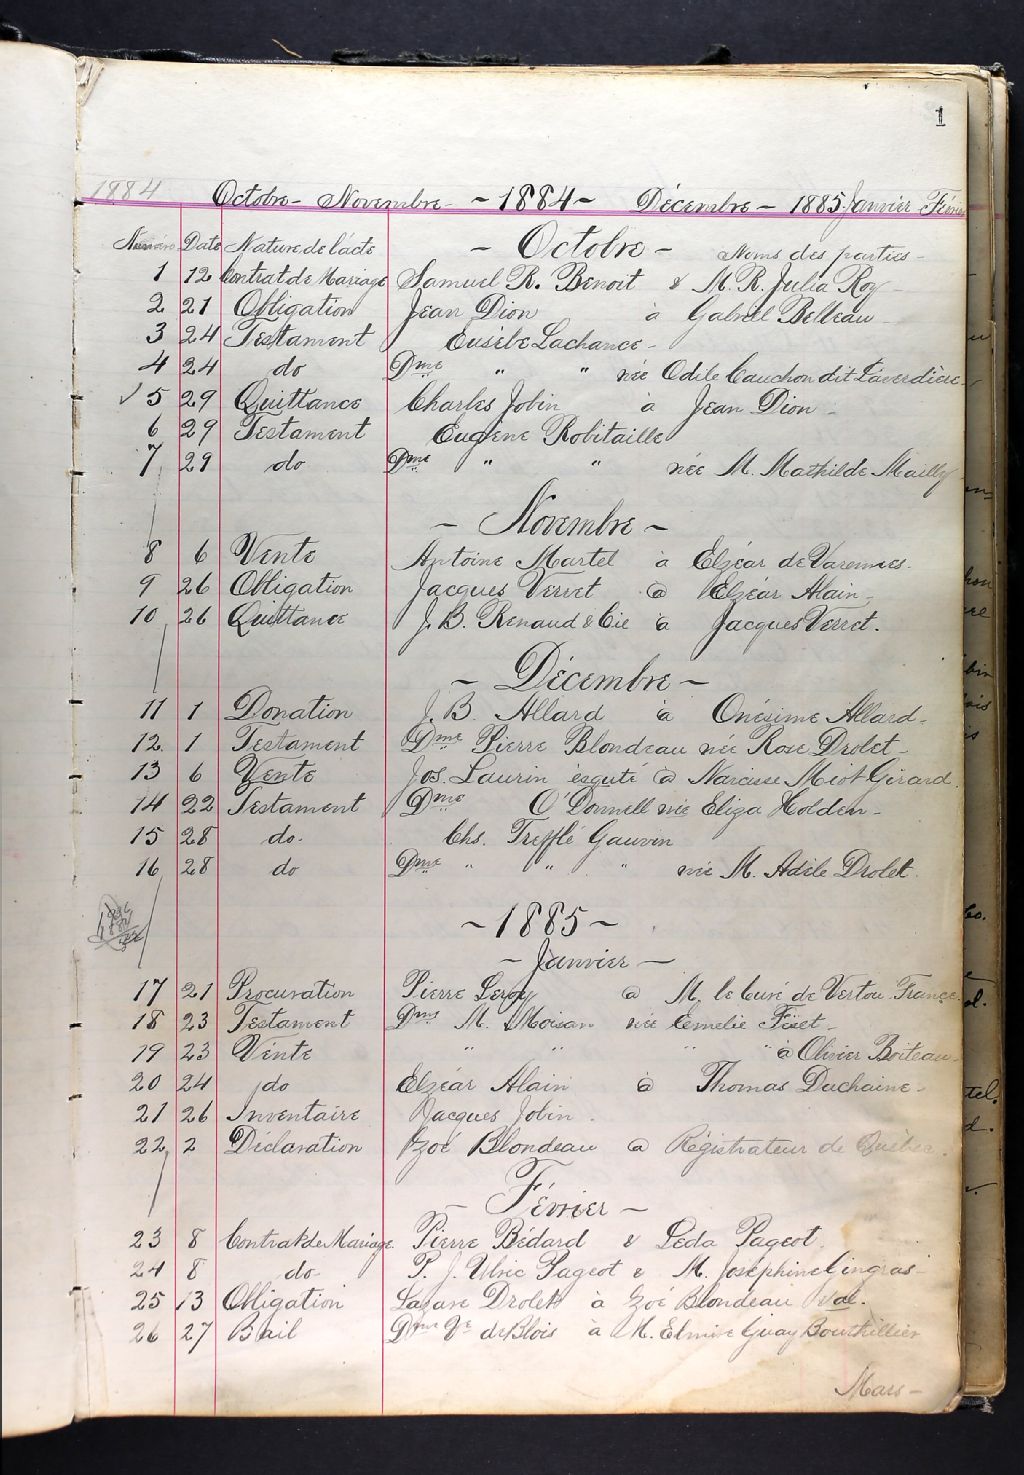 1
1884 Octobre - Novembre - ~ 1884 ~ Décembre - 1885 Janvier Février
Numéro Date Nature de l'acte ~ Octobre ~ Noms des parties -
1 12 Contrat de Mariage Samuel R. Benoit & M. R. Julia Roy -
2 21 Obligation Jean Dion à Gabriel Belleau -
3 24 Testament Eusèbe Lachance -
4 24 do Dme " " née Odile Cauchon dit Laverdière -
√ 5 29 Quittance Charles Jobin à Jean Dion -
6 29 Testament Eugène Robitaille
7 29 do Dme " " née M. Mathilde Mailly
~ Novembre ~
8 6 Vente Antoine Martel à Elzéar de Varennes -
9 26 Obligation Jacques Verret à Elzéar Alain -
10 26 Quittance J. B. Renaud & Cie à Jacques Verret.
~ Décembre ~
11 1 Donation J. B. Allard à Onésime Allard -
12 1 Testament Dme Pierre Blondeau née Rose Drolet -
13 6 Vente Jos. Laurin èsquté à Narcisse Miot Girard
14 22 Testament Dme O'Donnell née Eliza Holden -
15 28 do. Chs. Trefflé Gauvin
16 28 do Dme " " " née M. Adèle Drolet.
~ 1885 ~
~ Janvier ~
17 21 Procuration Pierre Leroy à M. le Curé de Vertou France.
18 23 Testament Dme M. Moisan née Fiset -
19 23 Vente " " " " à Olivier Boiteau -
20 24 do Elzéar Alain à Thomas Duchaine -
21 26 Inventaire Jacques Jobin.
22 2 Declaration Zoé Blondeau à Régistrateur de Québec.
~ Février ~
23 8 Contrat de Mariage Pierre Bédard & Léda Pageot.
24 8 do - P. J. Ulric Pageot & M. Joséphine Gingras -
25 13 Obligation Lazare Drolet à Zoé Blondeau Val.
26 27 Bail Dme Ve de Blois à M. Elmire Guay Bouthillier
Mars -